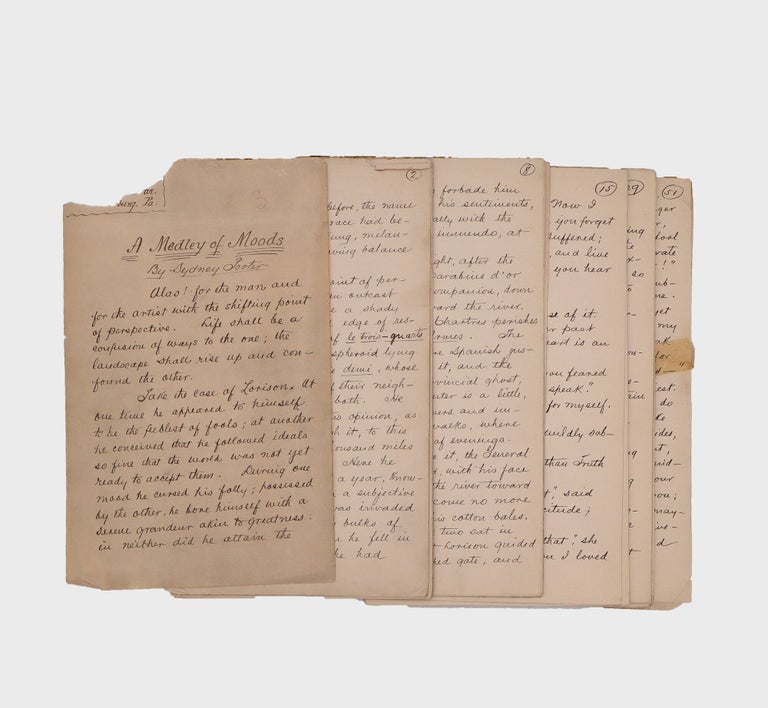 burg, Pa.
3
A Medley of Moods
By Sydney Porter
Alas! for the man and
for the artist with the shifting point
of perspective. Life shall be a
confusion of ways to the one; the
landscape shall rise up and con-
found the other.
Take the case of Lorison. At
one time he appeared to himself
to be the feeblest of fools; at another
he conceived that he followed ideals
so fine that the world was not yet
ready to accept them. During one
mood he cursed his folly; possessed
by the other, he bore himself with a
serene grandeur akin to greatness:
in neither did he attain the
2
before, the name
race had be-
ung, melan-
ving balance
oint of per-
an outcast
a shady
edge of res-
of le trois-quarts
spheroid lying
demi, whose
their neigh-
both. He
is opinion, as
h it, to this
ousand miles
Here he
a year, know-
a subjective
was invaded
bulks of
he fell in
he had
8
forbade him
his sentiments,
ally with the
innuendo, at
ght, after the
Carabine d'or
ompanion, down
ard the river.
Chartres perishes
The
Spanish jus-
it, and the
vincial ghost,
is a little,
walks, where
of evenings.
it, the General
with his face
the river toward
come no more
his cotton bales.
two sat in
Lorison guided
ked gate, and
15
Now I
you forget
suffered;
and live
you hear
se of it.
r past
eart is an
ou feared
speak."
for myself.
wildly sub-
than Truth
said
titude;
that," she
I loved
29
ing
so
ain
51
ger
fool
vate
!"
ub-
ne.
get
my
eat.
do
ides,
it,
our
you;
may-
ive-
d